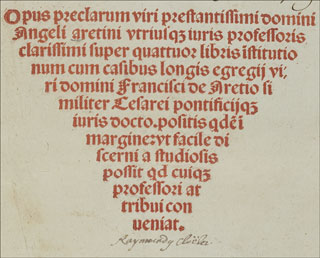 Opus preclarum viri prestantissimi domini
Angeli Aretini vtriusqȝ iuris professoris
clarissimi super quattuor libris īstitutio
num cum casibus longis egregij vi/
ri domini Francisci de Aretio si
militer Cesarei pontificijqȝ
iuris docto. positis qđē ī
margine: vt facile di
scerni a studiosis
possit qđ cuiqȝ
professori at
tribui con
ueniat.